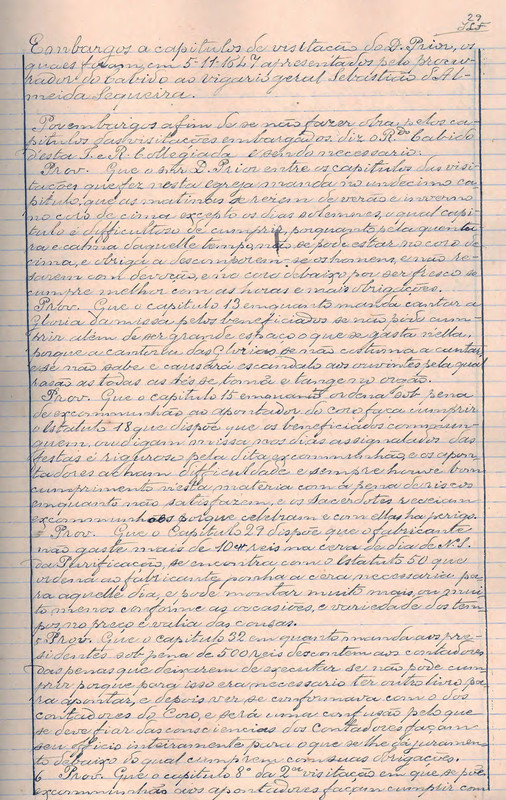 29
Embargos a capitulos de visitação do D. Prior, os
quaes foram, em 5-11-1647 apresentados pelo procu-
rador do Cabido ao vigario geral Sebastião d'Al-
meida Sequeira.
Por embargos a fim de se não fazer obra pelos ca-
pitulos das visitações embargados. diz o Rdo Cabido
d'esta I. e R. Collegiada e sendo necessario.
Prov. Que o snr D. Prior entre os capitulos das visi-
tações que fez nesta egreja manda no undecimo ca-
pitulo que as matinas se rezem de verão e inverno
no coro de cima excepto os dias solemnes, o qual capi-
tulo é difficultoso de cumprir, porquanto pela quentu-
ra e calma daquelle tempo não se pode estar no coro de
cima, e obriga a descomporem-se os homens, e não re-
sarem com devoção, e no coro debaixo, por ser fresco se
cumpre melhor com as horas e mais obrigações.
Prov. Que o capitulo 13 emquanto manda cantar a
Gloria da missa pelos beneficiados se não pode cum-
prir alem de ser grande espaço o que se gasta nella.
porque a cantoria das Glorias se não costuma a cantar,
e se não sabe e causará escandalo aos ouvintes pela qual
rasão as todas as sés se toma e tange no orgão.
Prov. Que o capitulo 15 emquanto ordena sob pena
de excommunhão ao apontador do coro faça cumprir
o Estatuto 18 que dispõe que os beneficiados commun-
guem, ou digam missa nos dias assignalados das
festas é riguroso pela dita excommunhão, e os apon-
tadores acham difficuldade e sempre houve bom
cumprimento nesta materia com a pena de riscos
emquanto não satisfaziam, e os sacerdotes receiam
excommunhões porque celebram e com ellas ha perigo.
5 Prov. Que o Capitulo 29 dispõe que o fabricante
não gaste mais de 10 reis na cera do dia de N. S.
da Purificação, se encontra com o Estatuto 50 que
ordena ao fabricante ponha a cera necessaria pa-
ra aquelle dia, e pode montar muito mais, ou mui-
to menos conforme as occasiões, e variedade dos tem-
pos no preço e valia das cousas.
Prov. Que o capitulo 32 em quanto manda aos pre-
sidentes sob pena de 500 reis descontem aos contadores
das penas que deixarem de executar se não pode cum-
prir porque para isso era necessario ter outro livro pa-
ra apontar, e depois ver se conformava com o dos
contadores do Coro, e será uma confusão pelo que
se deve fiar das consciencias dos Contadores façam
seu officio inteiramente para o que se lhe dá juramen-
to debaixo do qual cumprem com suas obrigações.
6 Prov. Que o capitulo 8º da 2ª visitação em que se põe
excommunhão aos apontadores façam cumprir com